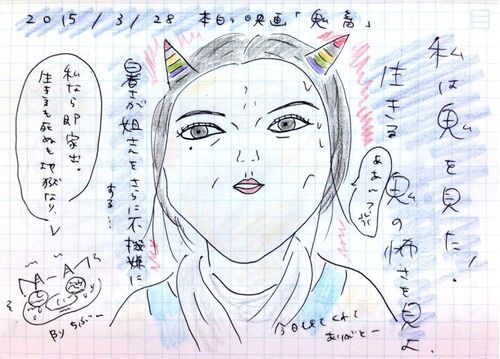 2015/3/28 本日の映画「鬼畜」
私は鬼を見た!
生きる鬼の怖さを見よ
暑さが姐さんをさらに不機嫌に
する…
私なら即家出。
生きるも死ぬも地獄なり
By
今日も見てくれて
ありがとー